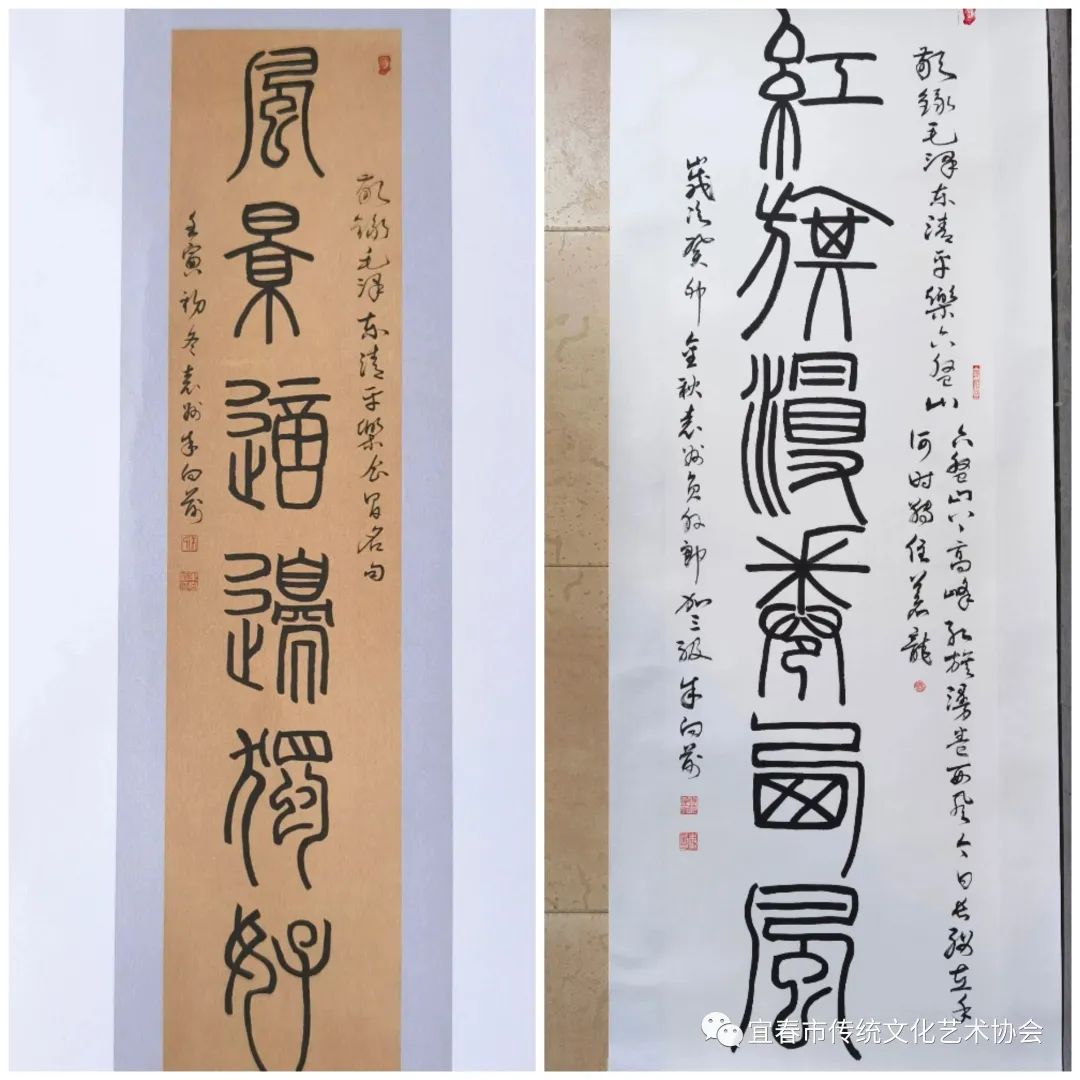 敬録毛泽东清平樂会昌名句
風景這邊獨好
壬寅初冬袁州朱向前
敬録毛泽东清平樂六盤山
六盤山上高峰红旗漫卷西风今日长缨在手
何时缚住蒼龍
紅旗漫卷西風
歲次癸卯金秋袁州员外郎加三级朱向前
宜春市传统文化艺术协会